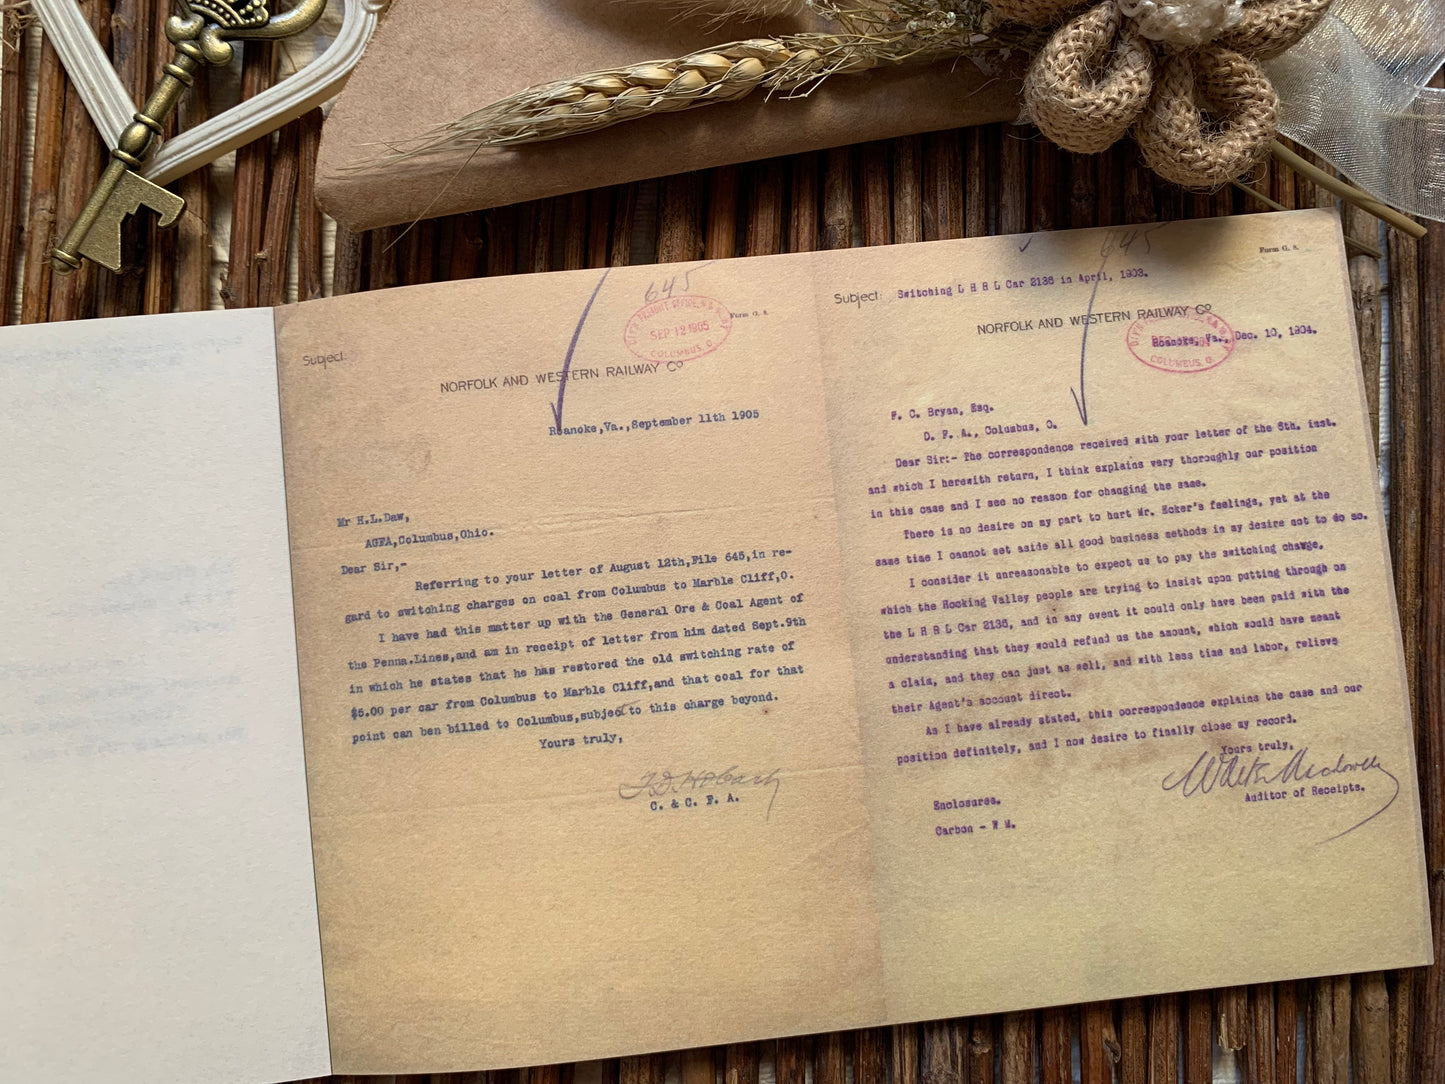 645
Form G. 8.
SEP 12 1905
COLUMBUS, O.
Subject:
NORFOLK AND WESTERN RAILWAY Cº
Roanoke,Va.,September 11th 1905
Mr H.L.Daw,
AGFA,Columbus,Ohio.
Dear Sir,-
Referring to your letter of August 12th,File 645,in re-
gard to switching charges on coal from Columbus to Marble Cliff,O.
I have had this matter up with the General Ore & Coal Agent of
the Penna.Lines,and am in receipt of letter from him dated Sept.9th
in which he states that he has restored the old switching rate of
$5.00 per car from Columbus to Marble Cliff,and that coal for that
point can ben billed to Columbus,subject to this charge beyond.
Yours truly,
C. & C. F. A.
645
Form G. 8.
Subject: Switching L H & L Car 2136 in April, 1903.
NORFOLK AND WESTERN RAILWAY Cº
Roanoke, Va., Dec. 10, 1904.
COLUMBUS, O.
F. C. Bryan, Esq.
D. F. A., Columbus, O.
Dear Sir:- The correspondence received with your letter of the 8th. inst.
and which I herewith return, I think explains very thoroughly our position
in this case and I see no reason for changing the same.
There is no desire on my part to hurt Mr. Ecker's feelings, yet at the
same time I cannot set aside all good business methods in my desire not to do so.
I consider it unreasonable to expect us to pay the switching charge,
which the Hocking Valley people are trying to insist upon putting through on
the L H & L Car 2136, and in any event it could only have been paid with the
understanding that they would refund us the amount, which would have meant
a claim, and they can just as well, and with less time and labor, relieve
their Agent's account direct.
As I have already stated, this correspondence explains the case and our
position definitely, and I now desire to finally close my record.
Yours truly,
Auditor of Receipts.
Enclosures.
Carbon - W M.